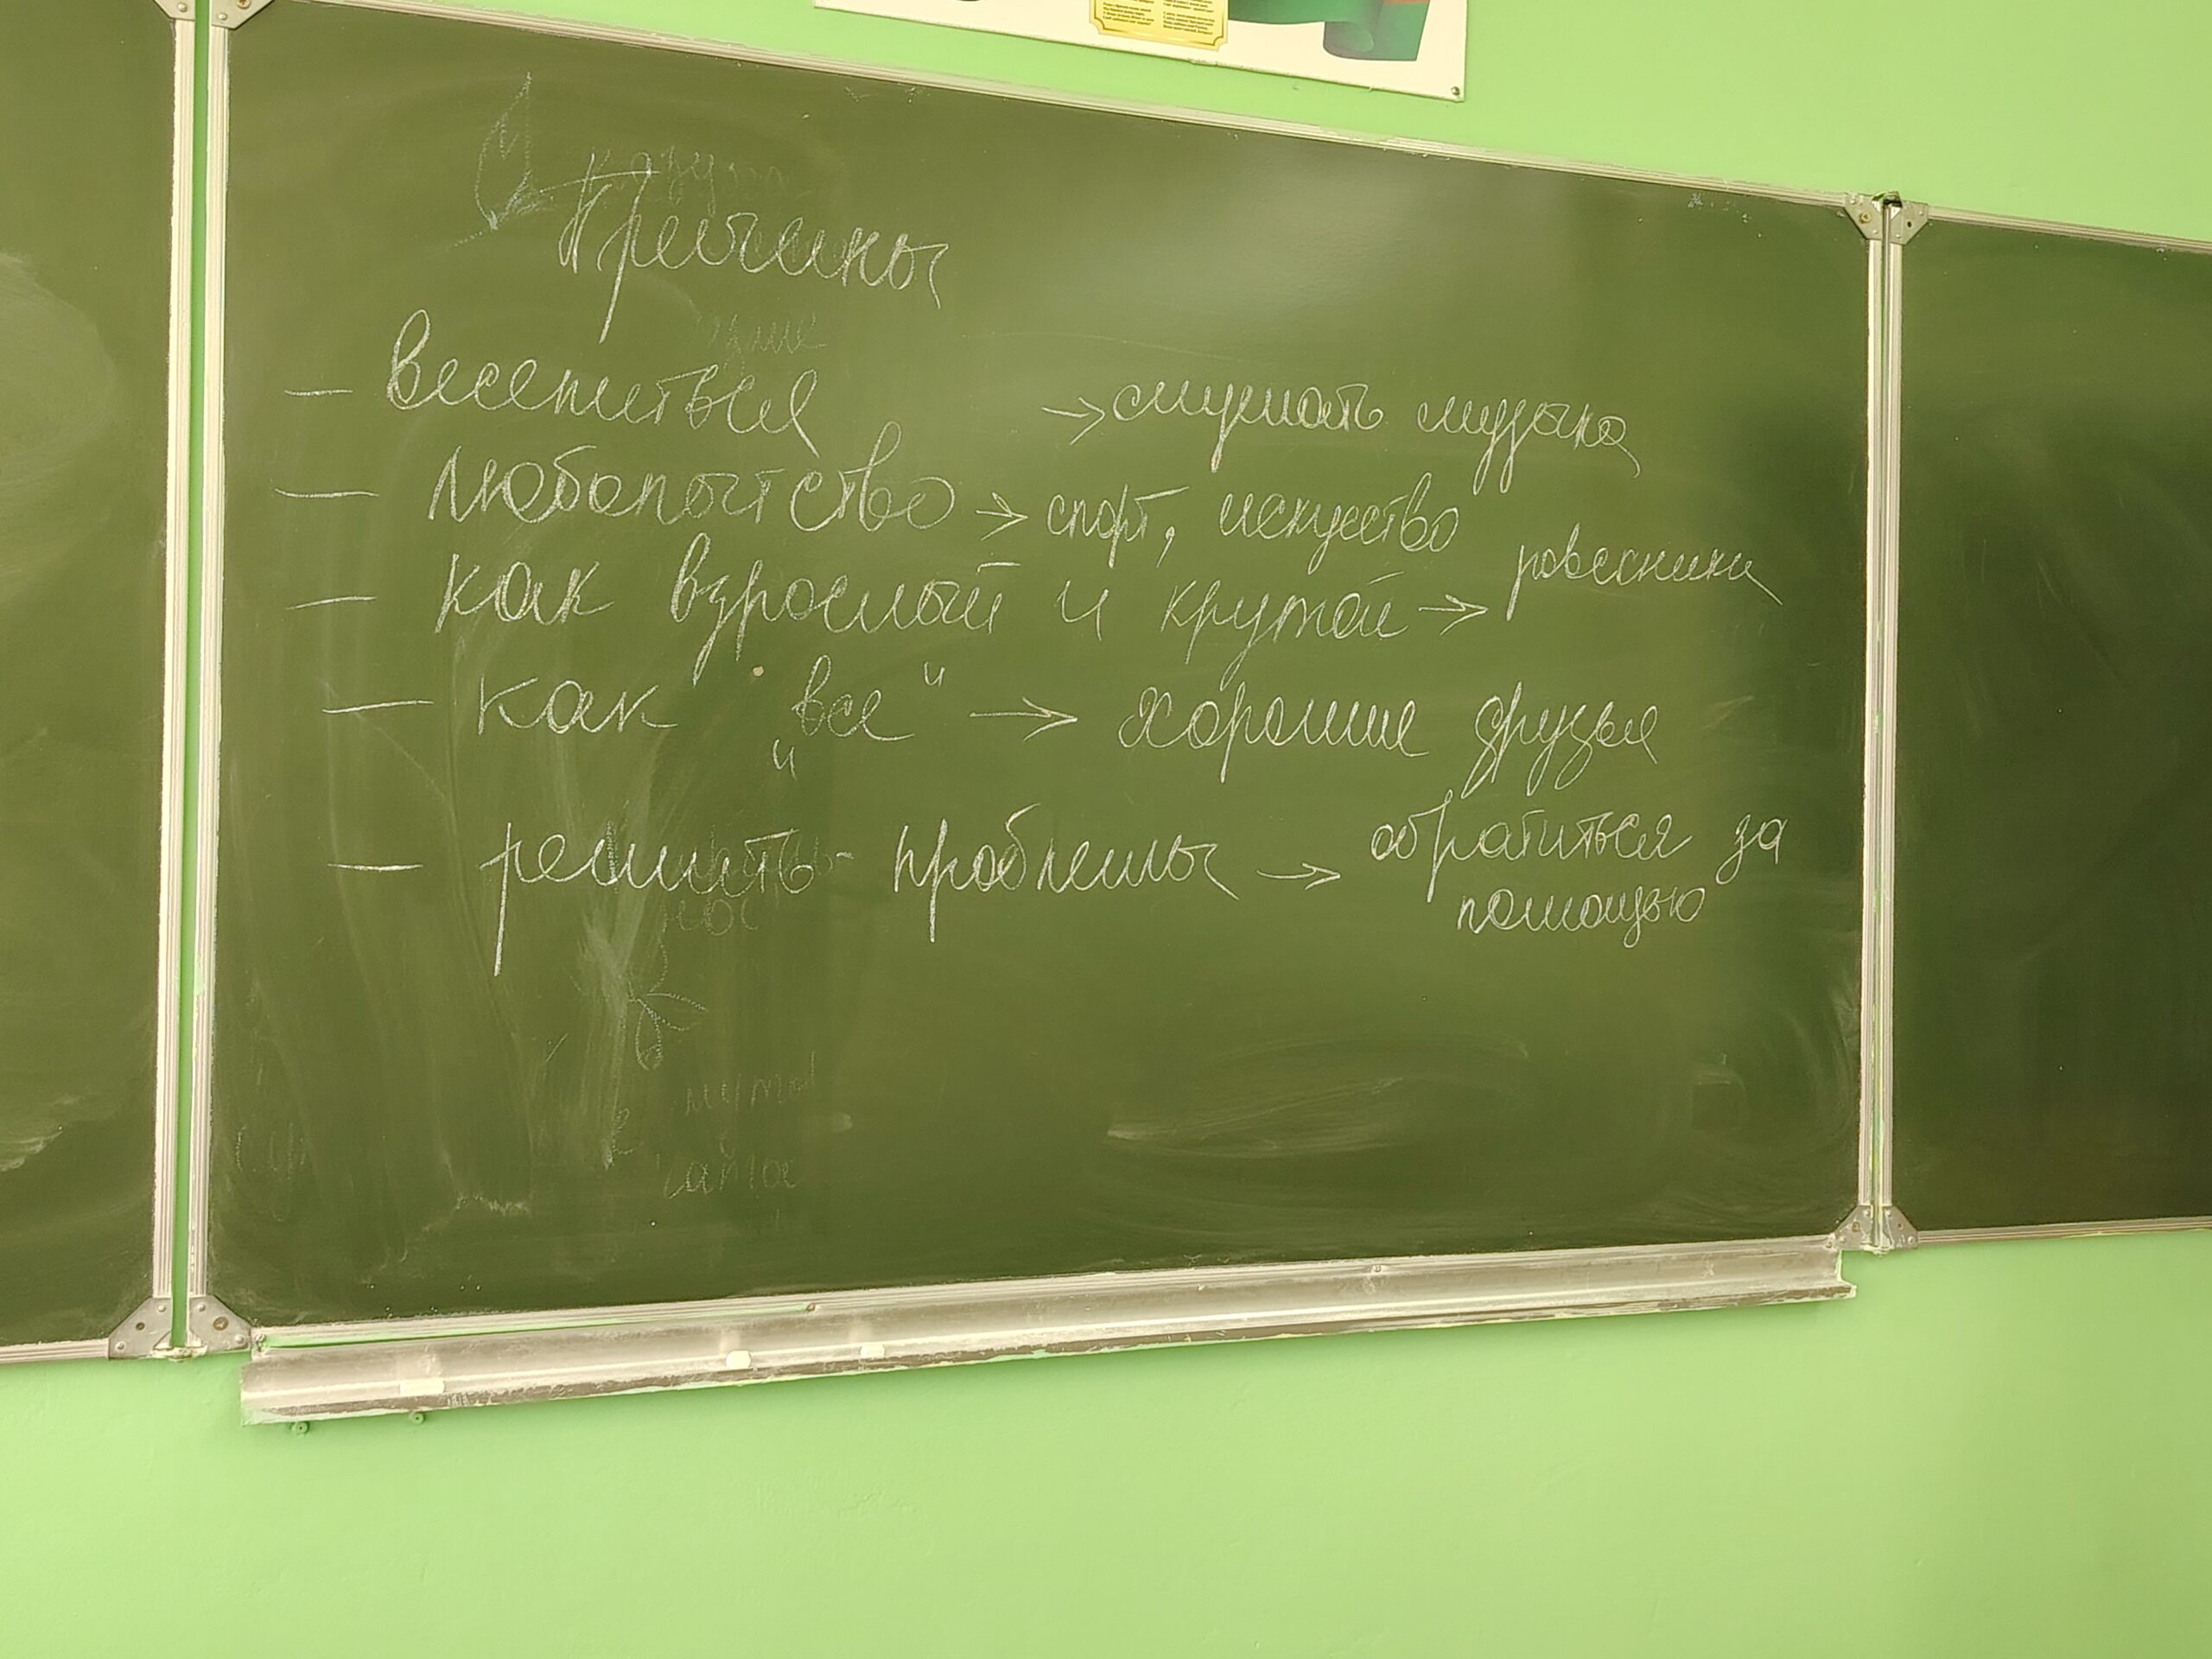 Причины
— веселиться → слушать музыка
— любопытство → спорт, искусство
— как взрослый и крутой → ровесники
— как „все“ → хорошие друзья
— решить проблемы → обратиться за
помощью